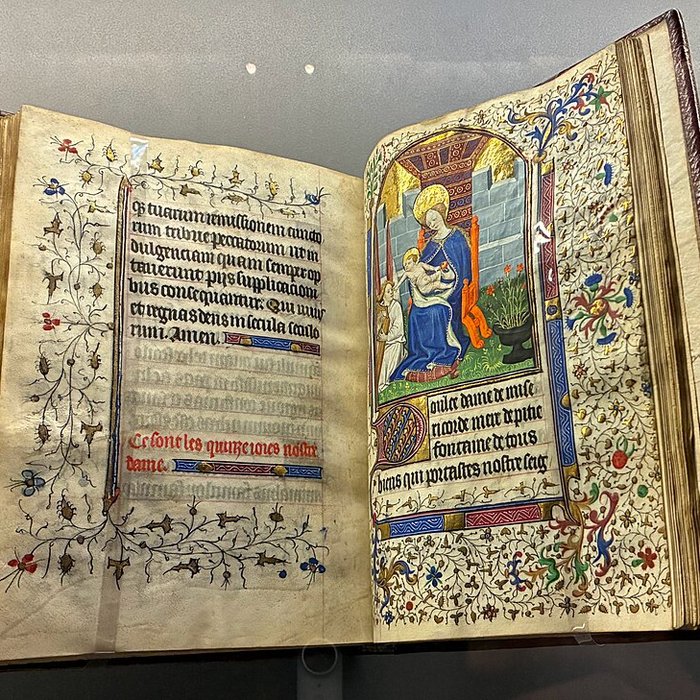 Q tuarum remissionem cuncto
rum tribue peccatorum ut in
dulgenciam quam semper op
taverunt pijs supplicacioni
bus consequantur. Qui vivis
et regnas deus in secula seculo
rum. Amen.
Ce sont les quinze ioies nostre
dame.
oulce dame de mise
ricorde mere de pitie
fontaine de tous
biens qui portastes nostre seig